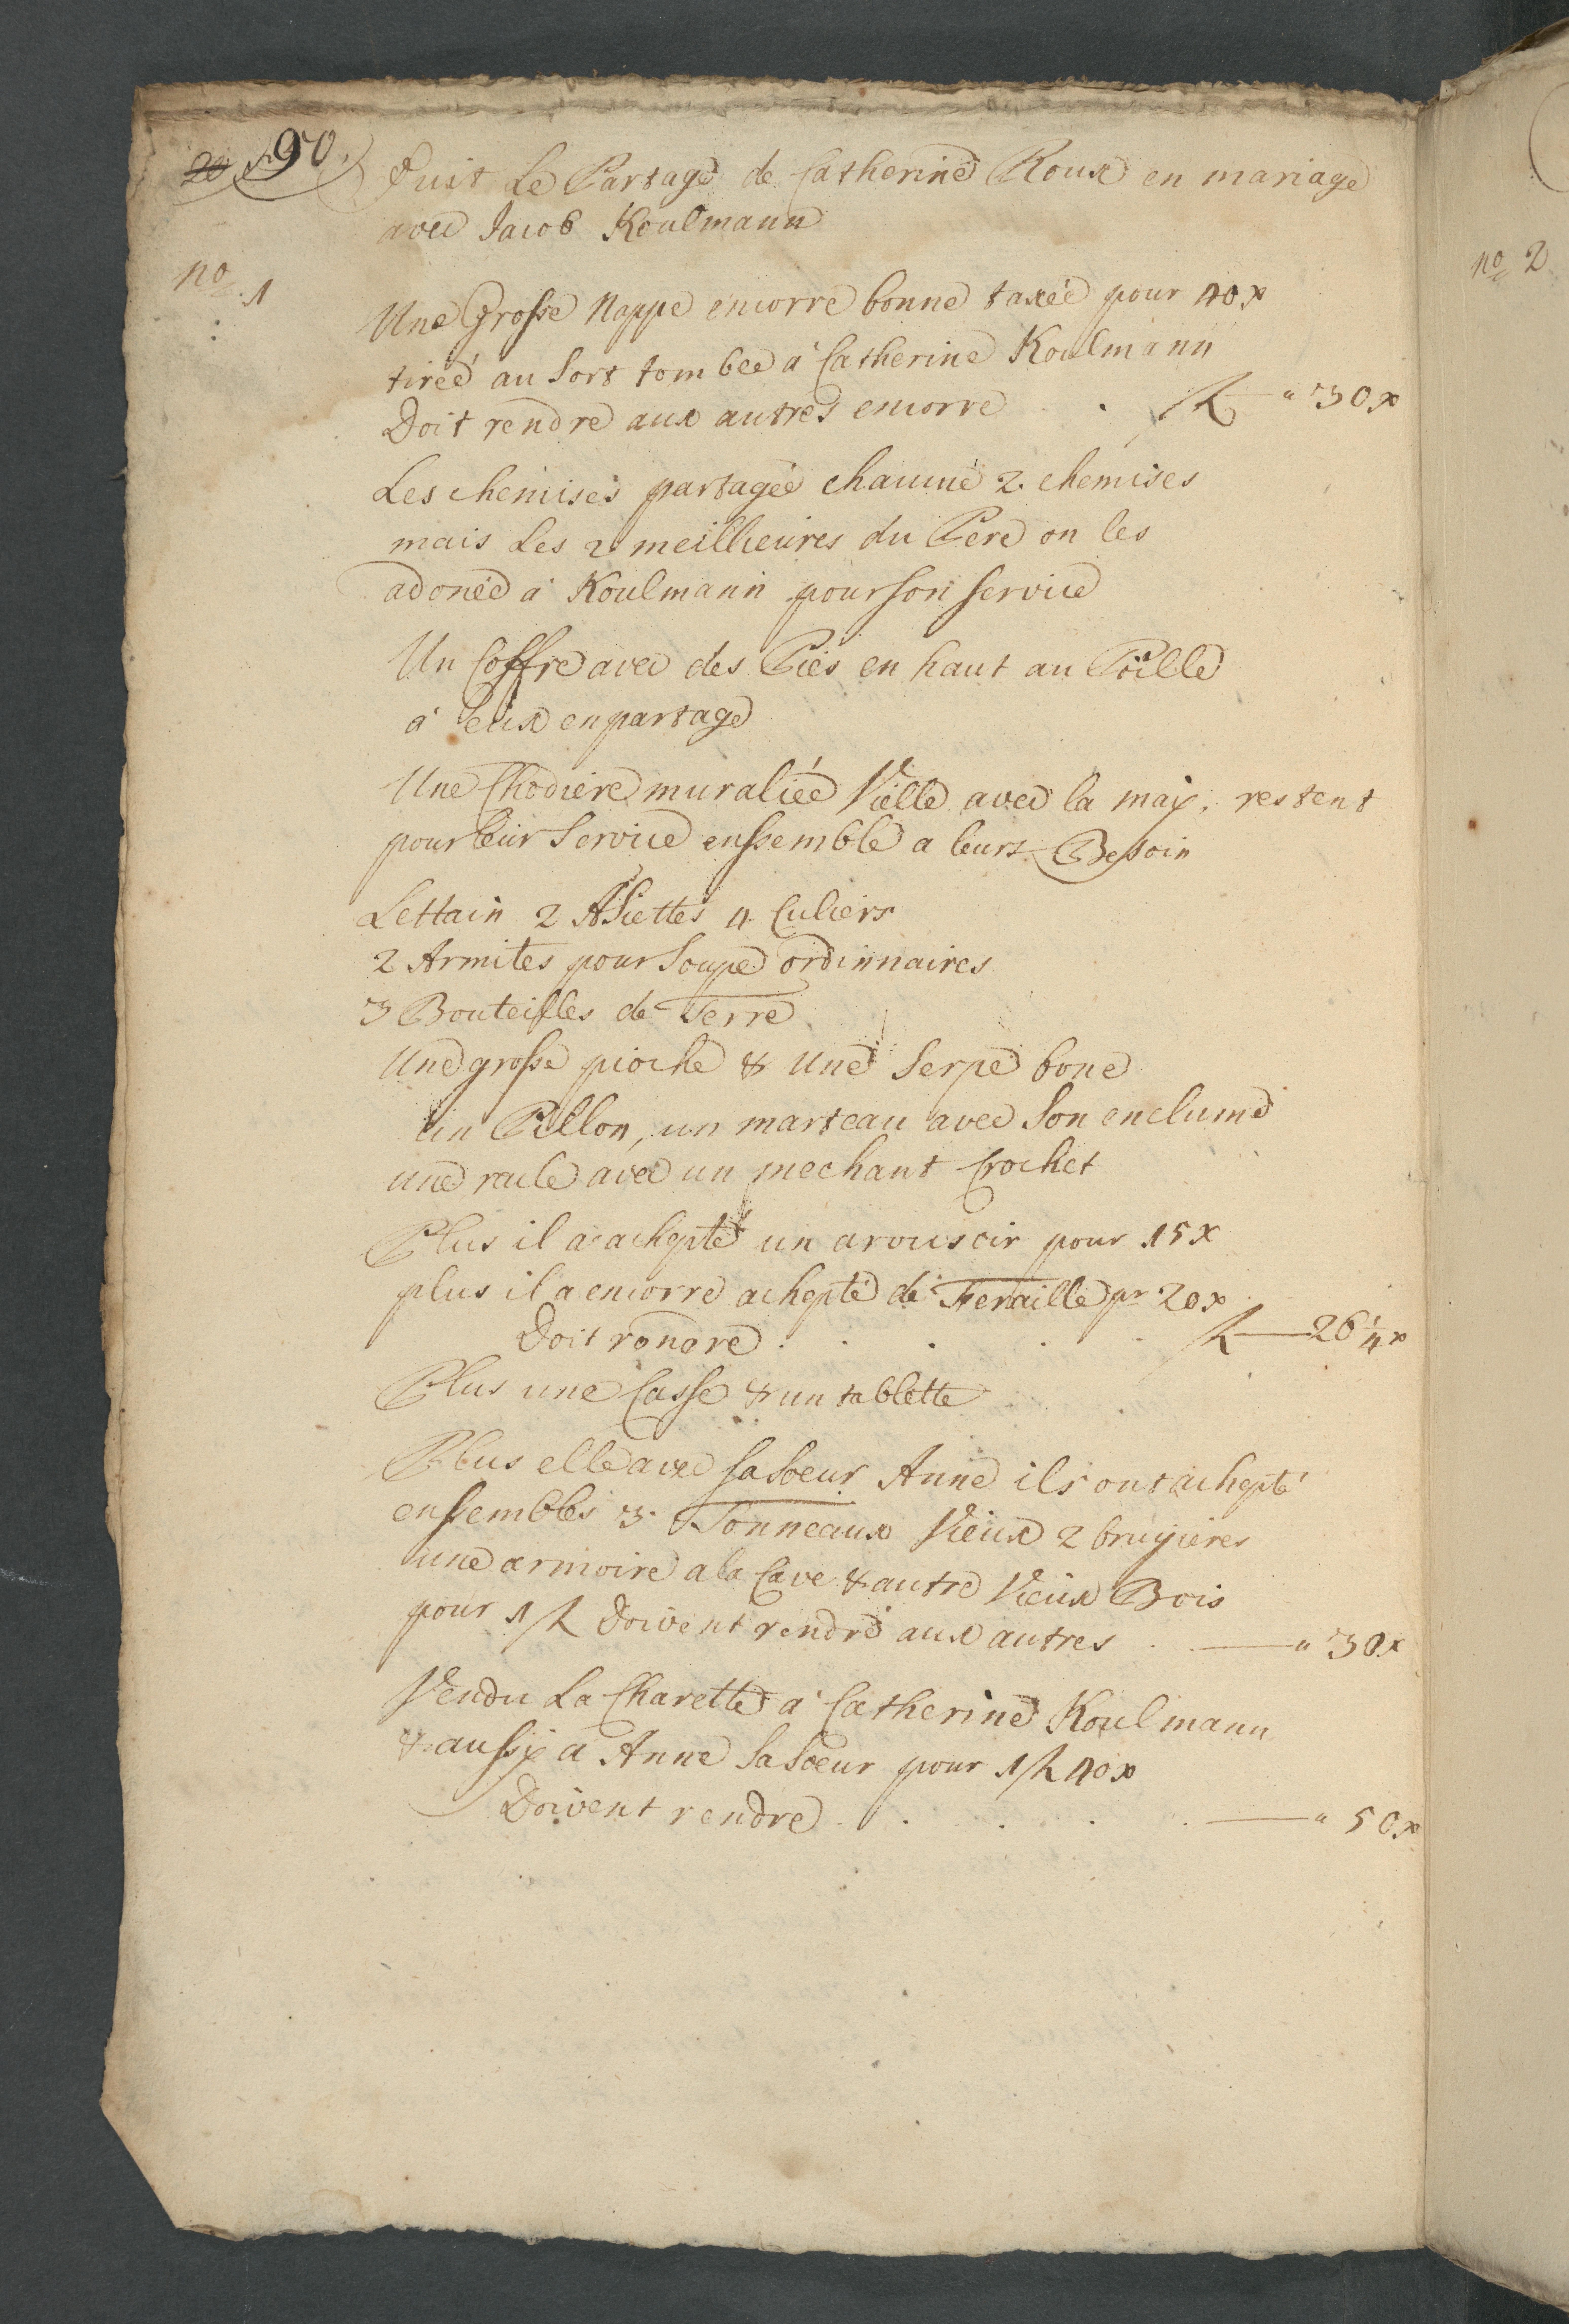 20 90.
Suit Le Partage de Catherine Roux en mariage
avec Jacob Koulmann
no. 1
Une Grosse Nappe encorre bonne taxée pour 40 x
tirée au Sort tombee a Catherine Koulmann
Doit rendre aux autres encorre . fl " 30 x
Les chemises partagée chacune 2. chemises
mais Les 2 meillieures du Pere on les
a donée a Koulmann pour son service
Un Coffre avec des Pies en haut au Poille
a eux en partage
Une Chodiere muraliée Vielle avec la maÿ, restent
pour leur Service enssemble a leurs Besoin
Lettain 2 Assiettes 4 Culiers
2 Armites pour Soupe ordinnaires
3 Bouteilles de Terre
Une grosse pioche & Une Serpe bone
un Pillon, un marteau avec Son enclume
une racle avec un mechant Crochet
Plus il a achepté un arousoir pour 15 x
plus il a encorre achepté de Feraille pr 20 x
Doit rendre . . . . fl — 26 1/4 x
Plus une Casse & un tablette
Plus elle avec sa Soeur Anne ils ont achepté
enssembles 3. Tonneaux Vieux 2 bruÿieres
une armoire a la Cave & autre Vieux Bois
pour 1 fl Doivent rendre aux autres . — " 30 x
Vendu La Charette a Catherine Koulmann
& aussÿ a Anne Sa Soeur pour 1 fl 40 x
Doivent rendre . . . . . — " 50 x
no 2